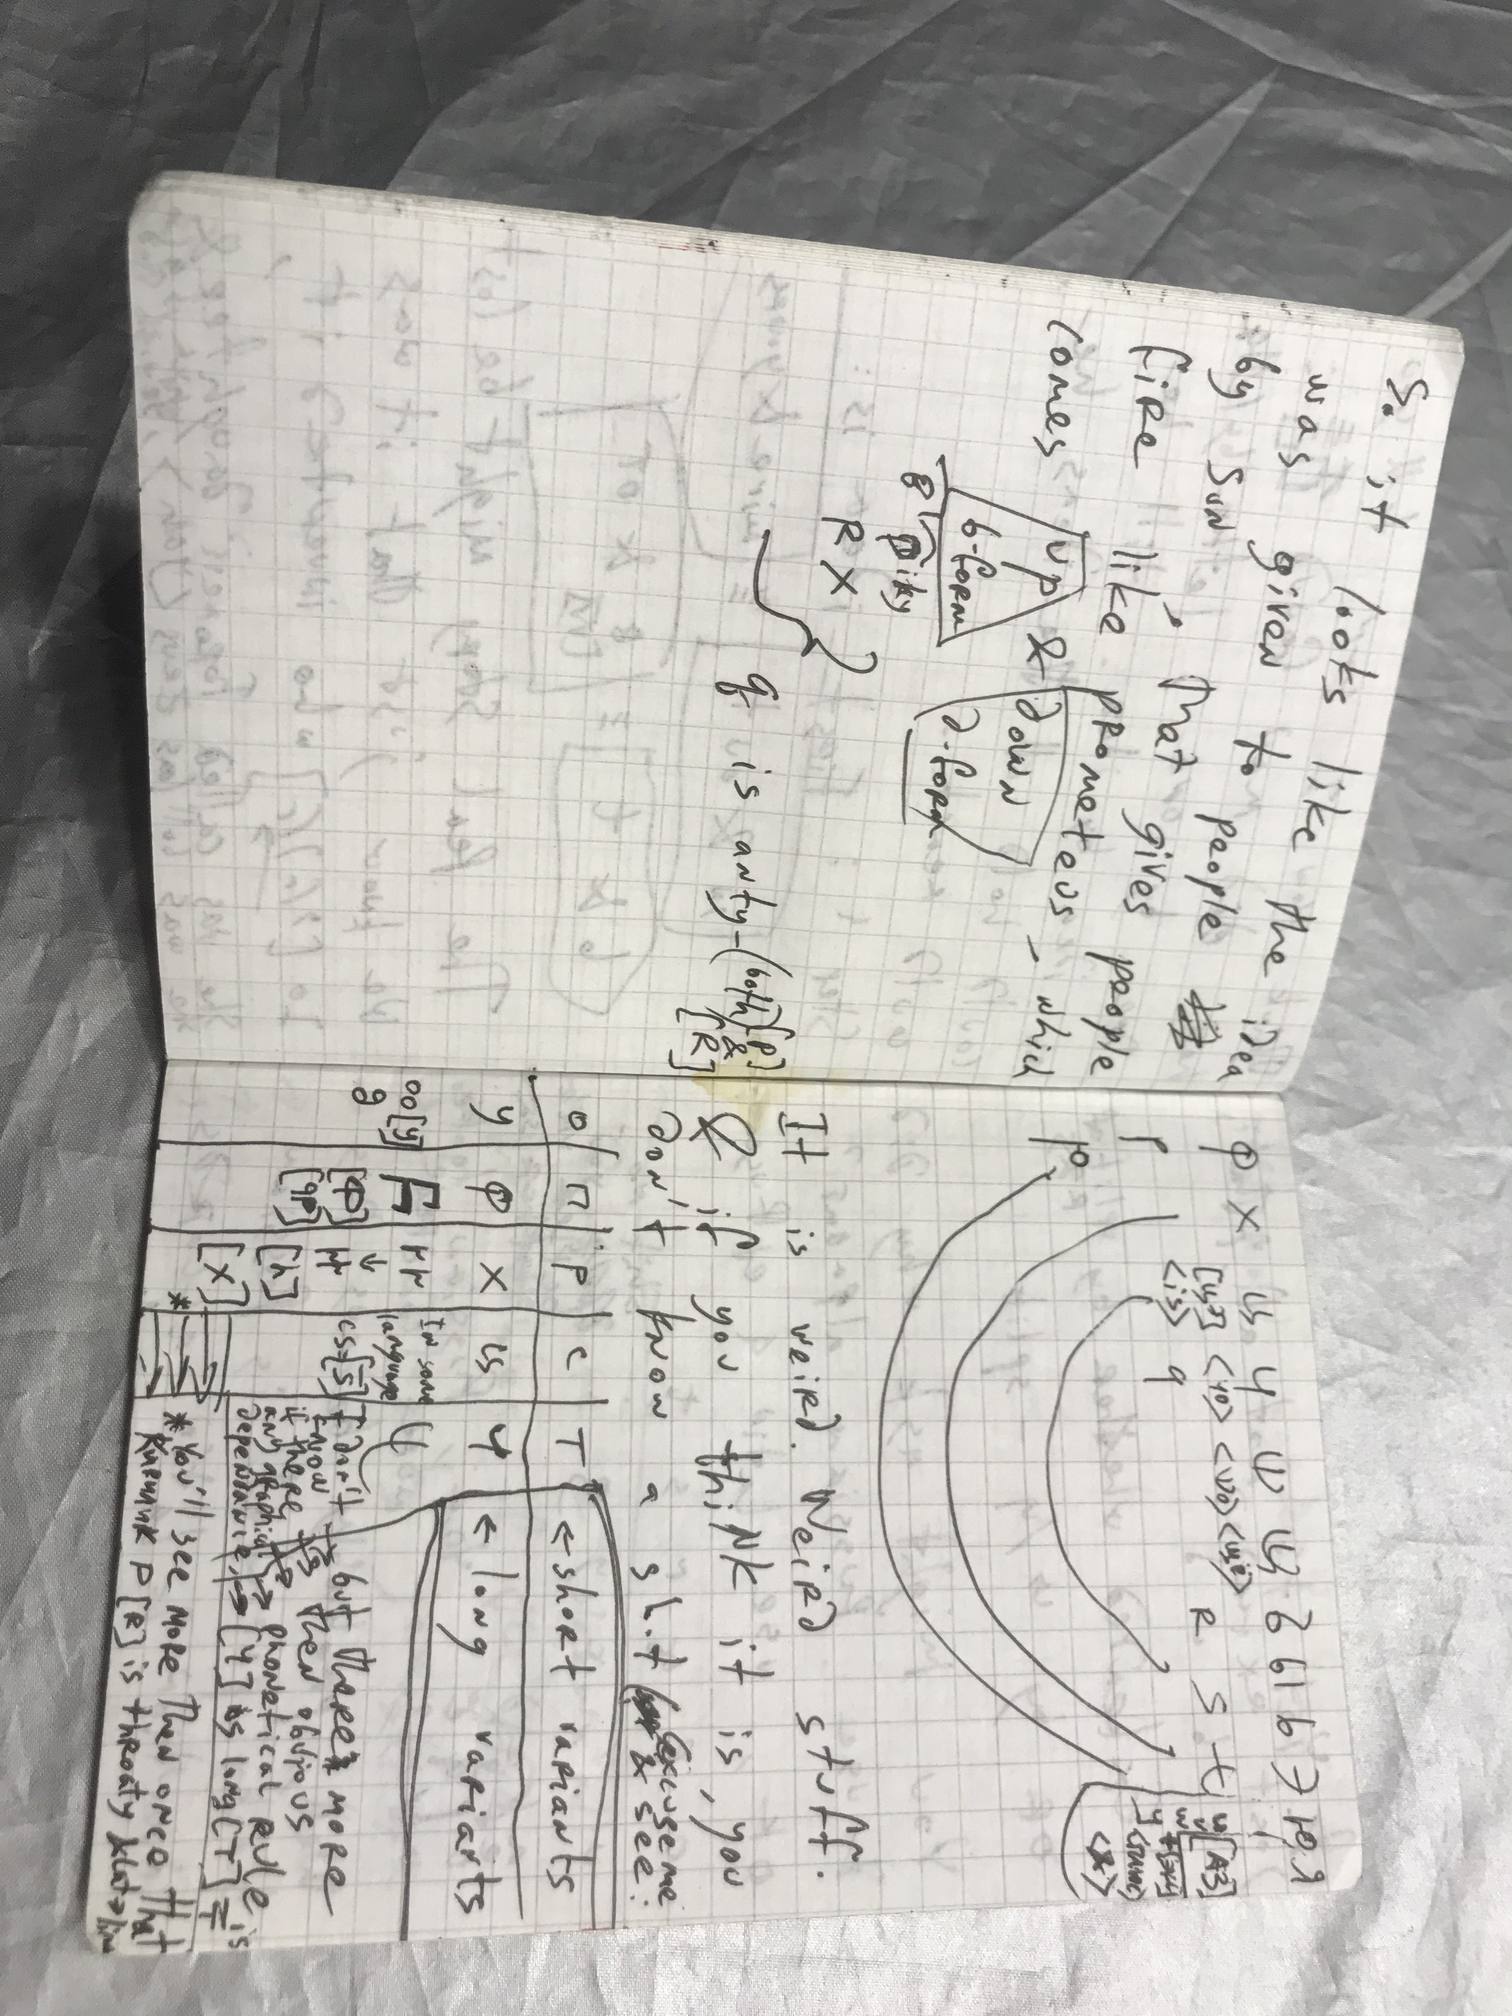 So it looks like the idea
was given to people
by Sun, that gives people
fire like prometeus – which
comes
up & down
b-form d-form
8 piky
R X
q is anty-(both) [p] & [R]
Ф Х Ц Ч Ш Щ Ъ Ы Ь Э Ю Я
[цэ] <ча> <ша> <ще>
<is>
r q R S t
p
It is weird. Weird stuff.
& if you think it is, you
don't know a shit (excuse me
& see:
о п р с т ← short variants
у ф х ц ч ← long variants
oo [y]
8
In some
language
cs=[s]
[ф]
[φ]
[h]
[x]
*
I don't
know
if there
any graphical
dependance,
but there more
then obvious
phonetical rule is
[ч] is long [т]
* You'll see more then once that
р [R] is throaty